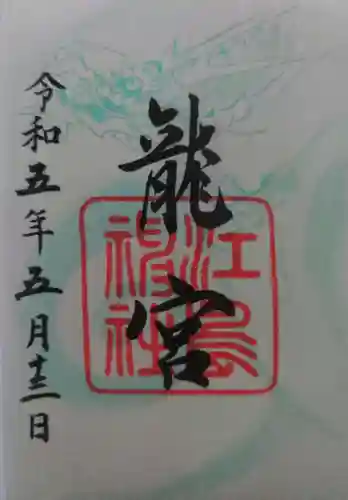 龍宮
江島神社
令和五年五月十三日